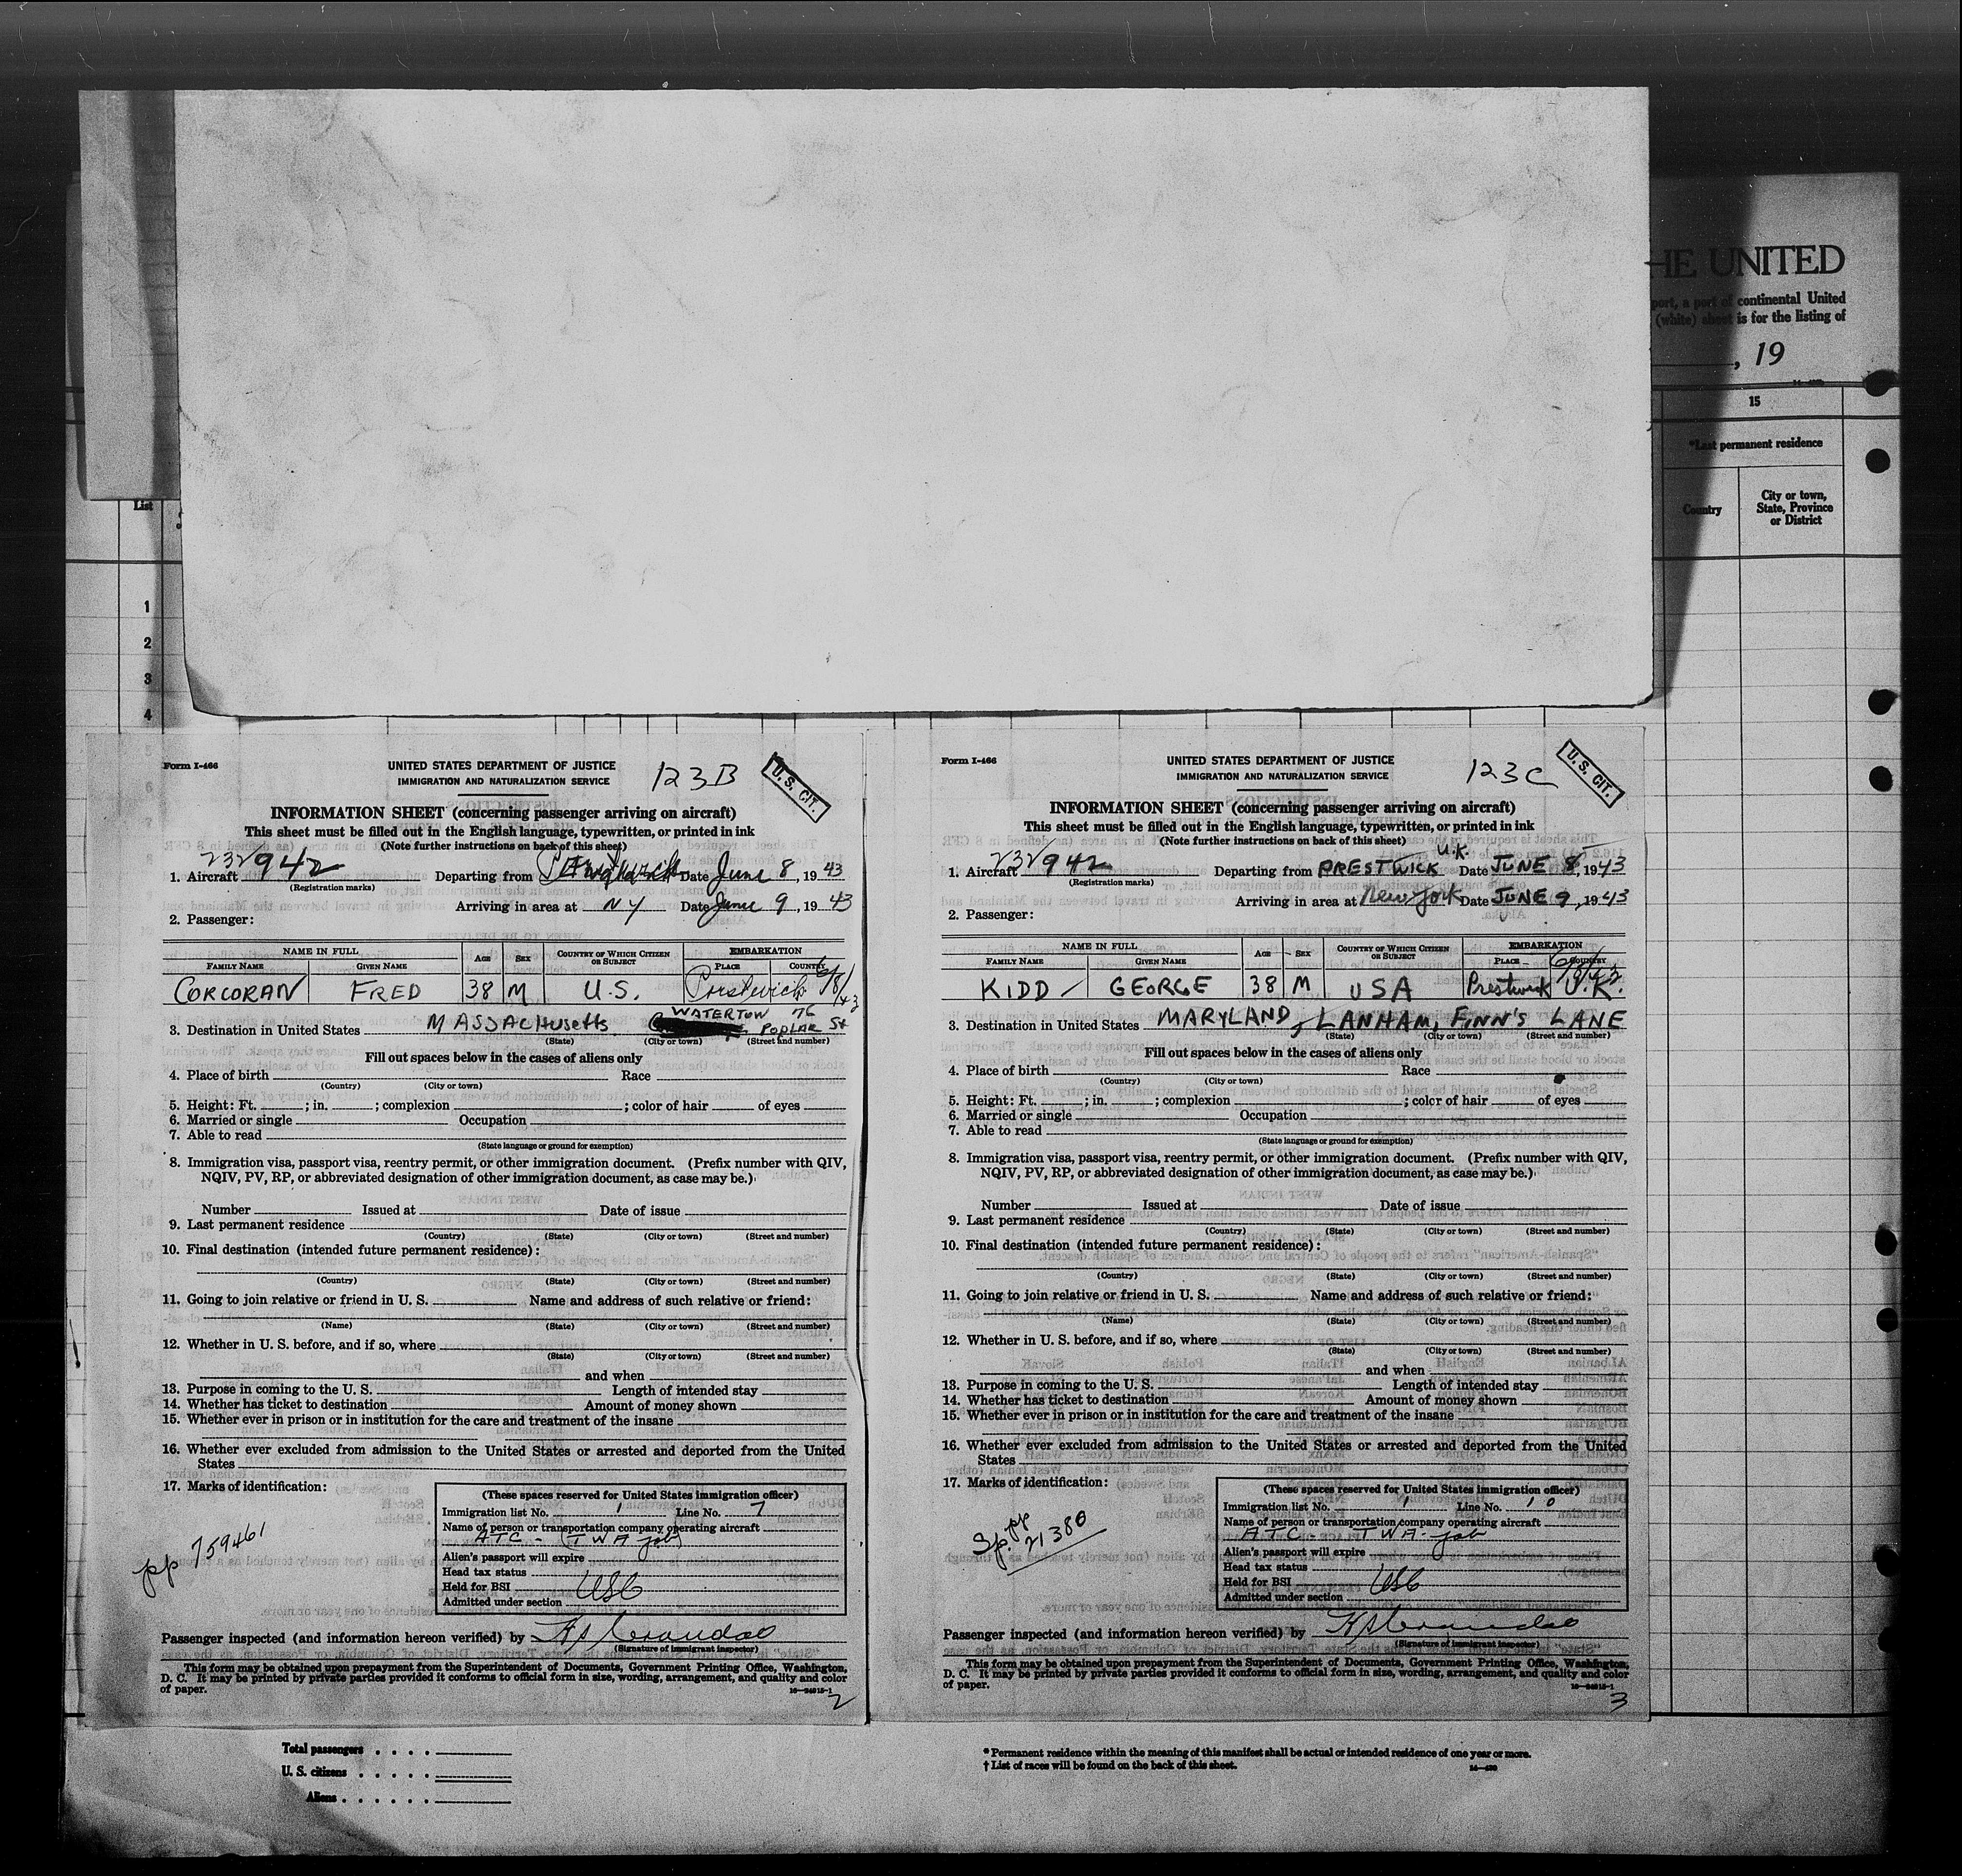 HE UNITED
port, a part of continental United
(white) sheet is for the listing of
, 19
15
*Last permanent residence
Country
City or town, State, Province or District
List
1
2
3
4
Form I-466
UNITED STATES DEPARTMENT OF JUSTICE
IMMIGRATION AND NATURALIZATION SERVICE
123B
U. S. CIT.
INFORMATION SHEET (concerning passenger arriving on aircraft)
This sheet must be filled out in the English language, typewritten, or printed in ink
(Note further instructions on back of this sheet)
1. Aircraft 232942 Departing from Date June 8, 1943
(Registration marks)
Arriving in area at NY Date June 9, 1943
2. Passenger:
NAME IN FULL AGE SEX COUNTRY OF WHICH CITIZEN OR SUBJECT EMBARKATION
FAMILY NAME GIVEN NAME PLACE COUNTRY
CORCORAN FRED 38 M U.S. Prestwick 6/8/43
3. Destination in United States MASSACHUSETTS WATERTOW 76 POPLAR St
(State) (City or town) (Street and number)
Fill out spaces below in the cases of aliens only
4. Place of birth Race
(Country) (City or town)
5. Height: Ft. ; in. ; complexion ; color of hair of eyes
6. Married or single Occupation
7. Able to read
(State language or ground for exemption)
8. Immigration visa, passport visa, reentry permit, or other immigration document. (Prefix number with QIV,
NQIV, PV, RP, or abbreviated designation of other immigration document, as case may be.)
Number Issued at Date of issue
9. Last permanent residence
(Country) (State) (City or town) (Street and number)
10. Final destination (intended future permanent residence):
(Country) (State) (City or town) (Street and number)
11. Going to join relative or friend in U. S. Name and address of such relative or friend:
(Name) (State) (City or town) (Street and number)
12. Whether in U. S. before, and if so, where
(State) (City or town) (Street and number)
and when
13. Purpose in coming to the U. S. Length of intended stay
14. Whether has ticket to destination Amount of money shown
15. Whether ever in prison or in institution for the care and treatment of the insane
16. Whether ever excluded from admission to the United States or arrested and deported from the United
States
17. Marks of identification:
pp 759461
(These spaces reserved for United States immigration officer)
Immigration list No. 1 Line No. 7
Name of person or transportation company operating aircraft
ATC - (TWA job)
Alien's passport will expire
Head tax status
Held for BSI USC
Admitted under section
Passenger inspected (and information hereon verified) by
(Signature of immigrant inspector)
This form may be obtained upon prepayment from the Superintendent of Documents, Government Printing Office, Washington,
D. C. It may be printed by private parties provided it conforms to official form in size, wording, arrangement, and quality and color
of paper.
16—24915-1
2
Form I-466
UNITED STATES DEPARTMENT OF JUSTICE
IMMIGRATION AND NATURALIZATION SERVICE
123C
U. S. CIT.
INFORMATION SHEET (concerning passenger arriving on aircraft)
This sheet must be filled out in the English language, typewritten, or printed in ink
(Note further instructions on back of this sheet)
1. Aircraft 232942 Departing from PRESTWICK U.K. Date JUNE 8, 1943
(Registration marks)
Arriving in area at New York Date JUNE 9, 1943
2. Passenger:
NAME IN FULL AGE SEX COUNTRY OF WHICH CITIZEN OR SUBJECT EMBARKATION
FAMILY NAME GIVEN NAME PLACE COUNTRY
KIDD GEORGE 38 M USA Prestwick U.K.
3. Destination in United States MARYLAND, LANHAM, FINN'S LANE
(State) (City or town) (Street and number)
Fill out spaces below in the cases of aliens only
4. Place of birth Race
(Country) (City or town)
5. Height: Ft. ; in. ; complexion ; color of hair of eyes
6. Married or single Occupation
7. Able to read
(State language or ground for exemption)
8. Immigration visa, passport visa, reentry permit, or other immigration document. (Prefix number with QIV,
NQIV, PV, RP, or abbreviated designation of other immigration document, as case may be.)
Number Issued at Date of issue
9. Last permanent residence
(Country) (State) (City or town) (Street and number)
10. Final destination (intended future permanent residence):
(Country) (State) (City or town) (Street and number)
11. Going to join relative or friend in U. S. Name and address of such relative or friend:
(Name) (State) (City or town) (Street and number)
12. Whether in U. S. before, and if so, where
(State) (City or town) (Street and number)
and when
13. Purpose in coming to the U. S. Length of intended stay
14. Whether has ticket to destination Amount of money shown
15. Whether ever in prison or in institution for the care and treatment of the insane
16. Whether ever excluded from admission to the United States or arrested and deported from the United
States
17. Marks of identification:
Sp. pp 21380
(These spaces reserved for United States immigration officer)
Immigration list No. 1 Line No. 10
Name of person or transportation company operating aircraft
ATC - TWA - job
Alien's passport will expire
Head tax status
Held for BSI USC
Admitted under section
Passenger inspected (and information hereon verified) by
(Signature of immigrant inspector)
This form may be obtained upon prepayment from the Superintendent of Documents, Government Printing Office, Washington,
D. C. It may be printed by private parties provided it conforms to official form in size, wording, arrangement, and quality and color
of paper.
16—24915-1
3
Total passengers
U. S. citizens
Aliens
* Permanent residence within the meaning of this manifest shall be actual or intended residence of one year or more.
† List of races will be found on the back of this sheet.